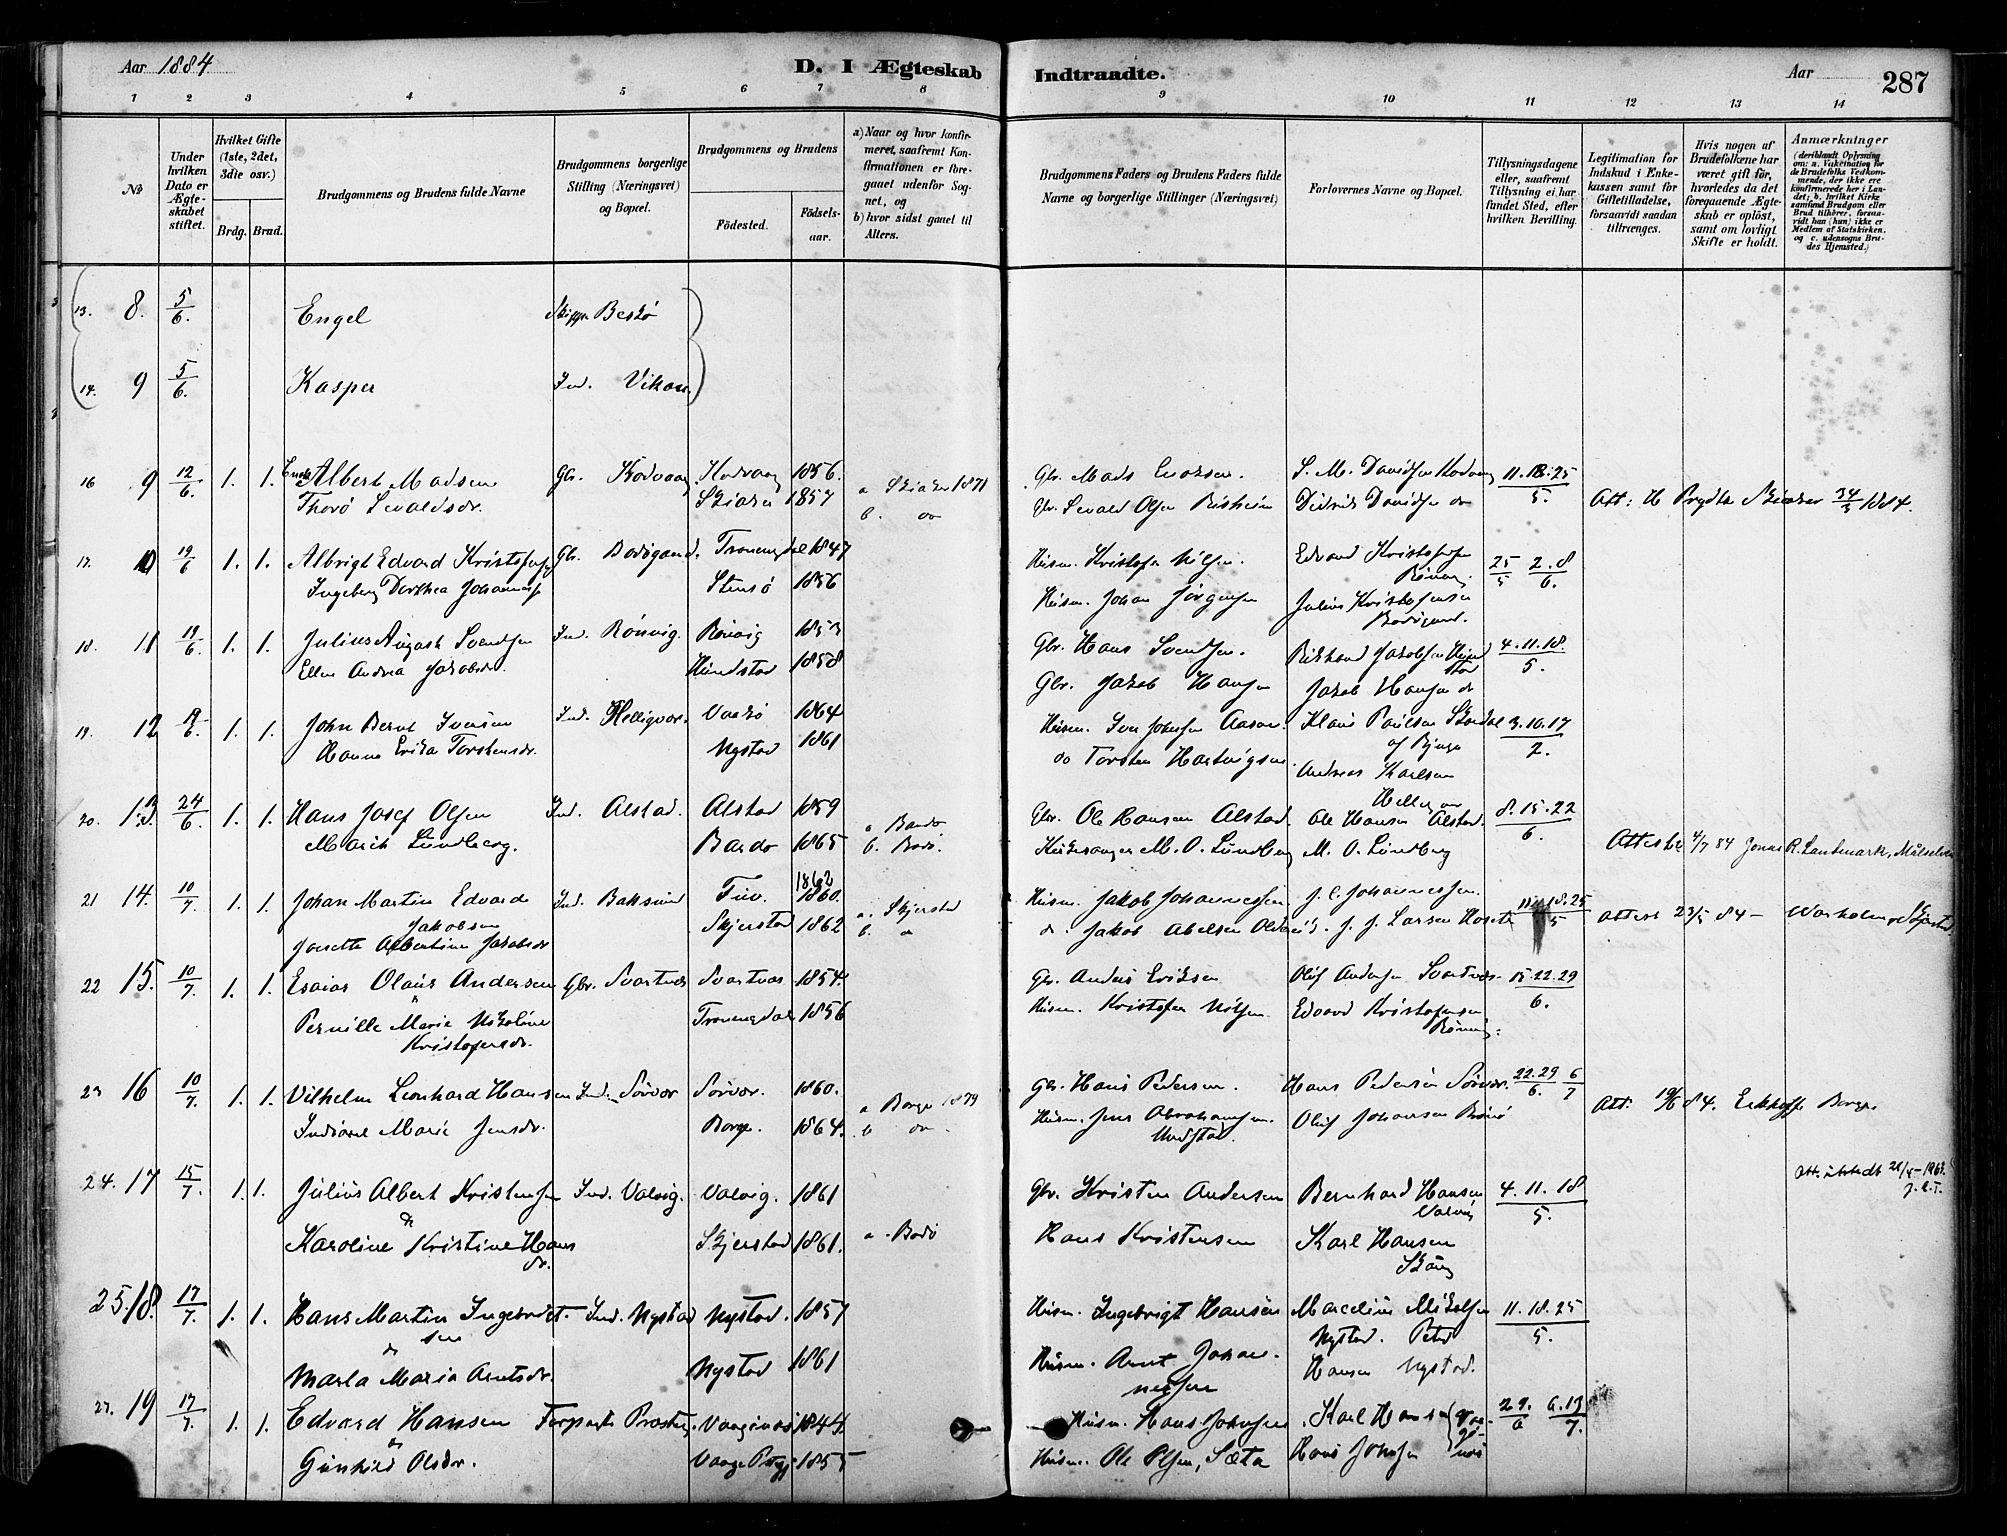 Aar 1884
D. I Ægteskab
Indtraadte.
Aar
287
1 2 3 4 5 6 7 8 9 10 11 12 13 14
No
Under hvilken Dato er Ægteskabet stiftet.
Hvilket Gifte (1ste, 2det, 3die osv.)
Brdg. Brud.
Brudgommens og Brudens fulde Navne
Brudgommens borgerlige Stilling (Næringsvei) og Bopæl.
Brudgommens og Brudens
Fødested.
Fødselsaar.
a) Naar og hvor konfirmeret, saafremt Konfirmationen er foregaaet udenfor Sognet, og
b) hvor sidst gaaet til Alters.
Brudgommens Faders og Brudens Faders fulde Navne og borgerlige Stillinger (Næringsvei)
Forlovernes Navne og Bopæl.
Tillysningsdagene eller, saafremt Tillysning ei har fundet Sted, efter hvilken Bevilling.
Legitimation for Indskud i Enkekassen samt for Giftetilladelse, forsaavidt saadan tiltrænges.
Hvis nogen af Brudefolkene har været gift før, hvorledes da det foregaaende Ægteskab er opløst, samt om lovligt Skifte er holdt.
Anmærkninger
(deriblandt Oplysning om: a. Vakcination for de Brudefolks Vedkommende, der ikke ere konfirmerede her i Landet; b. hvilket Kirkesamfund Brudgom eller Brud tilhører, forsaavidt han (hun) ikke er Medlem af Statskirken. og c. udensogns Brudes Hjemsted.)
13. 8. 5/6. Engel
14. 9 5/6. Kasper Ind. Vikan
16 9 12/6. 1. 1. Albert Madsen Gbr. Kodvaag Kodvaag 1856. Gbr. Mads S. M. Davidsen Kodvaag 11.18.25
Thorø Sevaldsdr. 1857 a 1871 Gbr. Sevald Olsen Didrik Davidsen do 5. Att: H Prydtz 1884.
b. do
17. 10 19/6 1. 1. Albrigt Edvard Kristofersen Gbr. Bodøgaard. Tranengdal 1847 Husm. Kristofer Nilsen. Edvard Kristofersen 25/5 2.8/6.
Ingeborg Dorthea Johannesd Stensø 1856 Husm. Johan Jörgensen Julius Kristofersen
Bodøgaard.
18. 11 19/6 1. 1. Julius August Svendsen Ind. Rönvig. Rönvig 1853 Gbr. Hans Svendsen. Rikhard Jakobsen Hundstad 4.11.18.
Ellen Andrea Jakobsdr. Hundstad 1858 Gbr. Jakob Hansen Jakob Hansen do 5.
19. 12 1. 1. John Bernt Iversen Ind. Helligvær. 1864 Husm. Iver Johnsen Klaus Paulsen 3.10.17
Hanna Erika Torstensdr. Nystad 1861 do Torsten Hartvigsen. Andreas Karlsen 2.
20. 13. 24/6. 1. 1. Hans Josef Olsen Ind. Alstad. Alstad 1859 Gbr. Ole Hansen Alstad. Ole Hansen Alstad. 8.15.22
Marie Lundberg. Bardo 1865 a Bardo b. Bodö. Kirkesanger M. O. Lundberg M. O. Lundberg 6. Attest 4/7 84 Jonas R. Landmark, Målselven
21 14. 10/7. 1. 1. Johan Martin Edvard Ind. 1862 1860. Husm. Jakob Johannessen J. C. Johannessen. 11.18.25
Jakobsen
Josette Albertine Jakobsdr Skjerstad 1862 a. Skjerstad b. do. Jakob Abelsen J. J. Larsen 5 Attest 23/5 84 – Skjerstad.
22 15. 10/7. 1. 1. Esaias Olaus Andersen Gbr. Svartvær Svartvær 1854. Gbr. Anders Eriksen Oluf Andersen Svartvær. 15.22.29
& Pernille Marie Nikoline Tranengdal 1856 Husm. Kristofer Nilsen. Edvard Kristofersen 6.
Kristofersdr.
23 16 10/7. 1. 1. Vilhelm Leonhard Hansen Ind. Sörvær Sörvær. 1860. Gbr. Hans Pedersen. Hans Pedersen Sörvær. 22.29/6. 6/7
Marie Jensdr. Borge. 1864. a Borge 1879 b do. Husm. Jens Abrahamsen. Oluf Johansen Att. 84. Eckhoff Borge
24. 17 15/7. 1. 1. Julius Albert Kristensen Ind. Valvig. Valvig. 1861 Gbr. Kristen Andersen Bernhard Hansen 4.11.18 Att. utstedt 1961.
& Karoline Kristine Hans Skjerstad 1861. a. Bodö Hans Kristensen Karl Hansen 5. J. E. T.
dr.
25. 18. 17/7. 1. 1. Hans Martin Ingebrigt- Ind. Nystad Nystad. 1857 Husm. Ingebrigt Hansen Marcelius Mikalsen 11.18.25
sen Nystad. Peter 5.
& Marla Maria Arntsdr. Nystad 1861 Husm. Arnt Johan- Hansen Nystad.
nessen
27. 19 17/7. 1. 1. Edvard Hansen Forpagter 1844. Husm. Hans Johnsen Karl Hansen 29./6 6.13/7.
& Gunhild Olsdr. 1855 Husm. Ole Olsen, Sæta Hans Johnsen